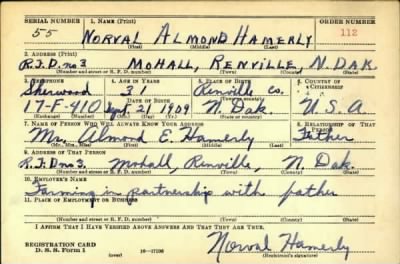 SERIAL NUMBER 1. NAME (Print) ORDER NUMBER
55 NORVAL ALMOND HAMERLY 112
(First) (Middle) (Last)
2. ADDRESS (Print)
R.F.D. no 3 MOHALL, RENVILLE, N. DAK.
(Number and street or R. F. D. number) (Town) (County) (State)
3. TELEPHONE 4. AGE IN YEARS 5. PLACE OF BIRTH 6. COUNTRY OF CITIZENSHIP
Sherwood 31 Renville Co.
DATE OF BIRTH
17-F-410 Sept 21 1909 N. Dak. U.S.A.
7. NAME OF PERSON WHO WILL ALWAYS KNOW YOUR ADDRESS 8. RELATIONSHIP OF THAT PERSON
Mr. Almond E. Hamerly Father
(Mr., Mrs., Miss) (First) (Middle) (Last)
9. ADDRESS OF THAT PERSON
R.F.D no 3. Mohall, Renville, N. Dak.
(Number and street or R. F. D. number) (Town) (County) (State)
10. EMPLOYER'S NAME
Farming in partnership with father
11. PLACE OF EMPLOYMENT OR BUSINESS
(Number and street or R. F. D. number) (Town) (County) (State)
I AFFIRM THAT I HAVE VERIFIED ABOVE ANSWERS AND THAT THEY ARE TRUE.
REGISTRATION CARD
D. S. S. Form 1 16-17105 Norval Hamerly
(Registrant's signature)